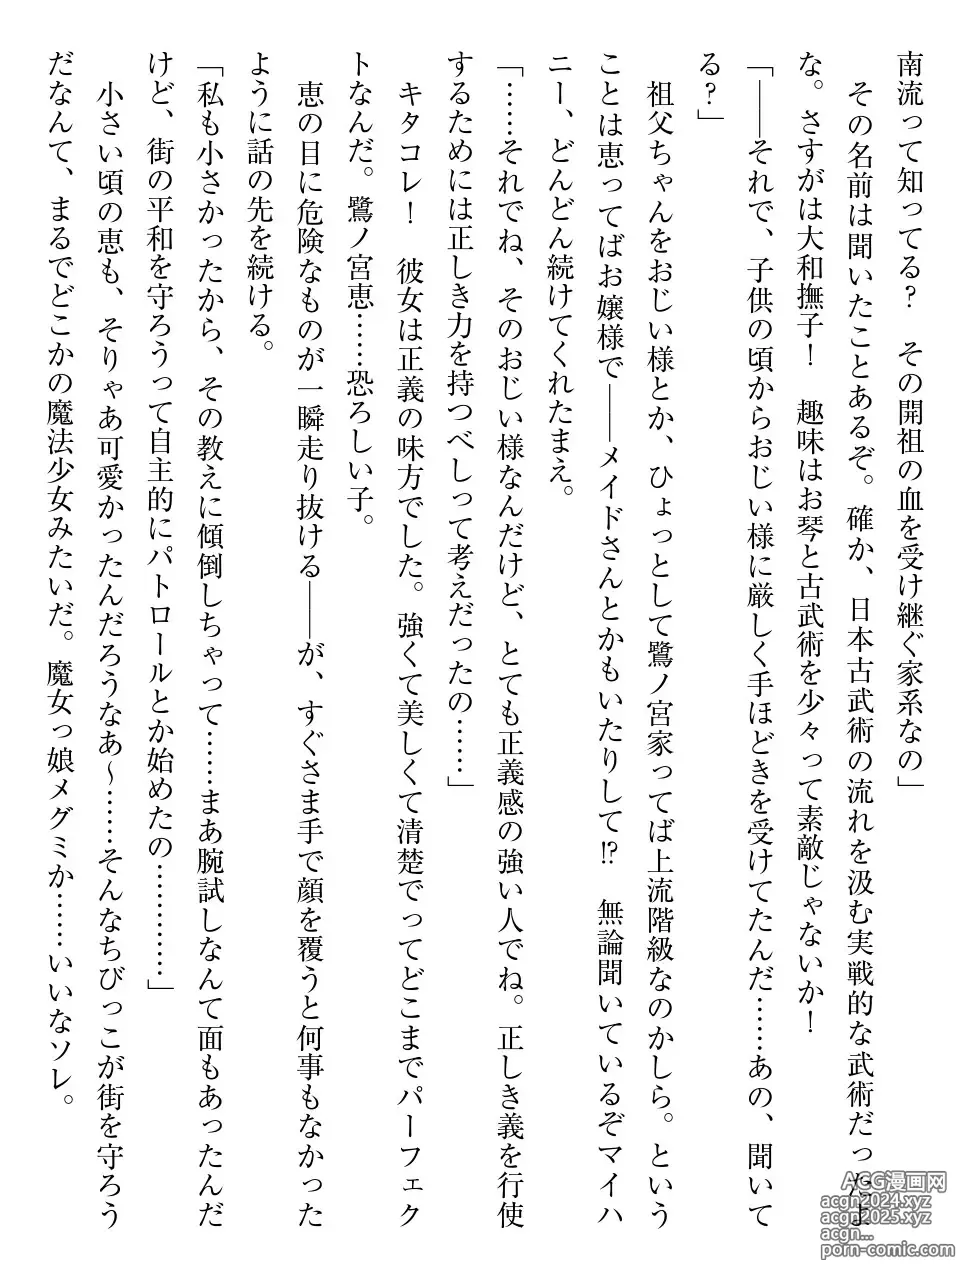 南流って知ってる？　その開祖の血を受け継ぐ家系なの」
　その名前は聞いたことあるぞ。確か、日本古武術の流れを汲む実戦的な武術だったよ
な。さすがは大和撫子！　趣味はお琴と古武術を少々って素敵じゃないか！
「――それで、子供の頃からおじい様に厳しく手ほどきを受けてたんだ……あの、聞いて
る？」
　祖父ちゃんをおじい様とか、ひょっとして鷺ノ宮家ってば上流階級なのかしら。という
ことは恵ってばお嬢様で――メイドさんとかもいたりして!?　無論聞いているぞマイハ
ニー、どんどん続けてくれたまえ。
「……それでね、そのおじい様なんだけど、とても正義感の強い人でね。正しき義を行使
するためには正しき力を持つべしって考えだったの……」
　キタコレ！　彼女は正義の味方でした。強くて美しくて清楚でってどこまでパーフェク
トなんだ。鷺ノ宮恵……恐ろしい子。
　恵の目に危険なものが一瞬走り抜ける――が、すぐさま手で顔を覆うと何事もなかった
ように話の先を続ける。
「私も小さかったから、その教えに傾倒しちゃって……まあ腕試しなんて面もあったんだ
けど、街の平和を守ろうって自主的にパトロールとか始めたの…………」
　小さい頃の恵も、そりゃあ可愛かったんだろうなあ～……そんなちびっこが街を守ろう
だなんて、まるでどこかの魔法少女みたいだ。魔女っ娘メグミか……いいなソレ。
ACG漫画网
acgn2024.xyz
acgn2025.xyz
acgn...
porn-comic.com